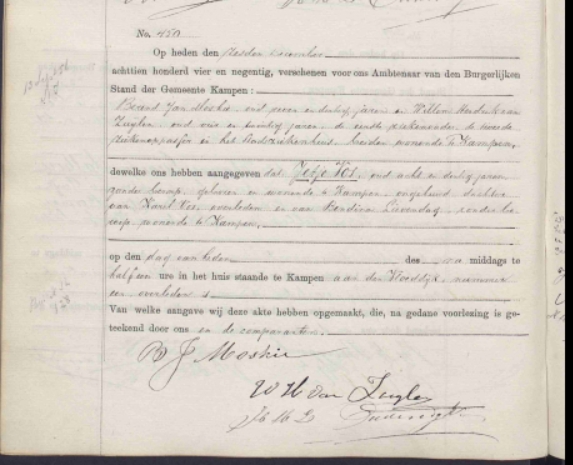 No. 450
Op heden den zesden December
achttien honderd vier en negentig, verschenen voor ons Ambtenaar van den Burgerlijken
Stand der Gemeente Kampen:
Berend Jan oud en dertig jaren en Willem Hendrik van
Zuylen, oud en twintig jaren, de eerste ziekenvader, de tweede
ziekenoppasser in het Stadsziekenhuis, beiden wonende te Kampen,
dewelke ons hebben aangegeven dat Jetje Vos, oud acht en dertig jaren
zonder beroep, geboren en wonende te Kampen, ongehuwd, dochter
van Karel Vos, overleden en van Lievendag, zonder be-
roep, wonende te Kampen,
op den dag van heden des na middags te
half een ure in het huis staande te Kampen aan den Vloeddijk, nummer
een overleden is
Van welke aangave wij deze akte hebben opgemaakt, die, na gedane voorlezing is ge-
teekend door ons en de comparanten.
B J
W H van Zuylen